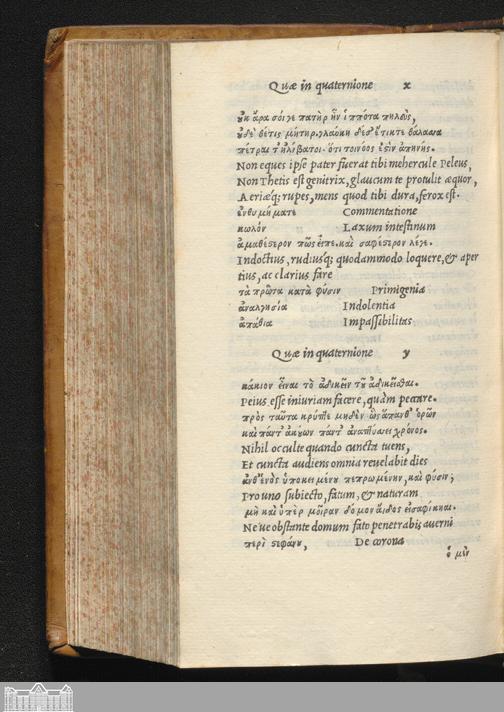 Quæ in quaternione x
οὐκ ἄρα σοί γε πατὴρ ἦν ἱππότα πηλεὺς,
οὐδὲ θέτις μήτηρ. γλαύκη δέ σ' ἔτικτε θάλασσα
πέτραι τ' ἠλίβατοι. ὅτι τοι νόος ἐστὶν ἀπηνής.
Non eques ipse pater fuerat tibi mehercule Peleus,
Non Thetis est genitrix, glaucum te protulit æquor,
Aeriæq; rupes, mens quod tibi dura, ferox est.
ἐνθυμήματε Commentatione
κωλόν Laxum intestinum
ἀμαθέστερον πῶς εἰπε. καὶ σαφέστερον λέγε.
Indoctius, rudiusq; quodammodo loquere, & aper
tius, ac clarius fare
τὰ πρῶτα κατὰ φύσιν Primigenia
ἀναλγησία Indolentia
ἀπάθια Impassibilitas
Quæ in quaternione y
κάκιον εἶναι τὸ ἀδικεῖν τοῦ ἀδικεῖσθαι.
Peius esse iniuriam facere, quàm peccare.
πρὸς ταῦτα κρύπτε μηδὲν ὡς ἅπανθ' ὁρῶν
καὶ πάντ' ἀκούων πάντ' ἀναπτύσσει χρόνος.
Nihil occulte quando cuncta tuens,
Et cuncta audiens omnia reuelabit dies
ἀνθ' ἑνὸς ὑποκειμένου πεπρωμένην, καὶ φύσιν;
Pro uno subiecto, fatum, & naturam
μὴ καὶ ὑπὲρ μοῖραν δόμον ἄϊδος εἰσαφίκηαι.
Ne ue obstante domum fato penetrabis auerni
περὶ στεφάνου, De corona
ὁ μὲν